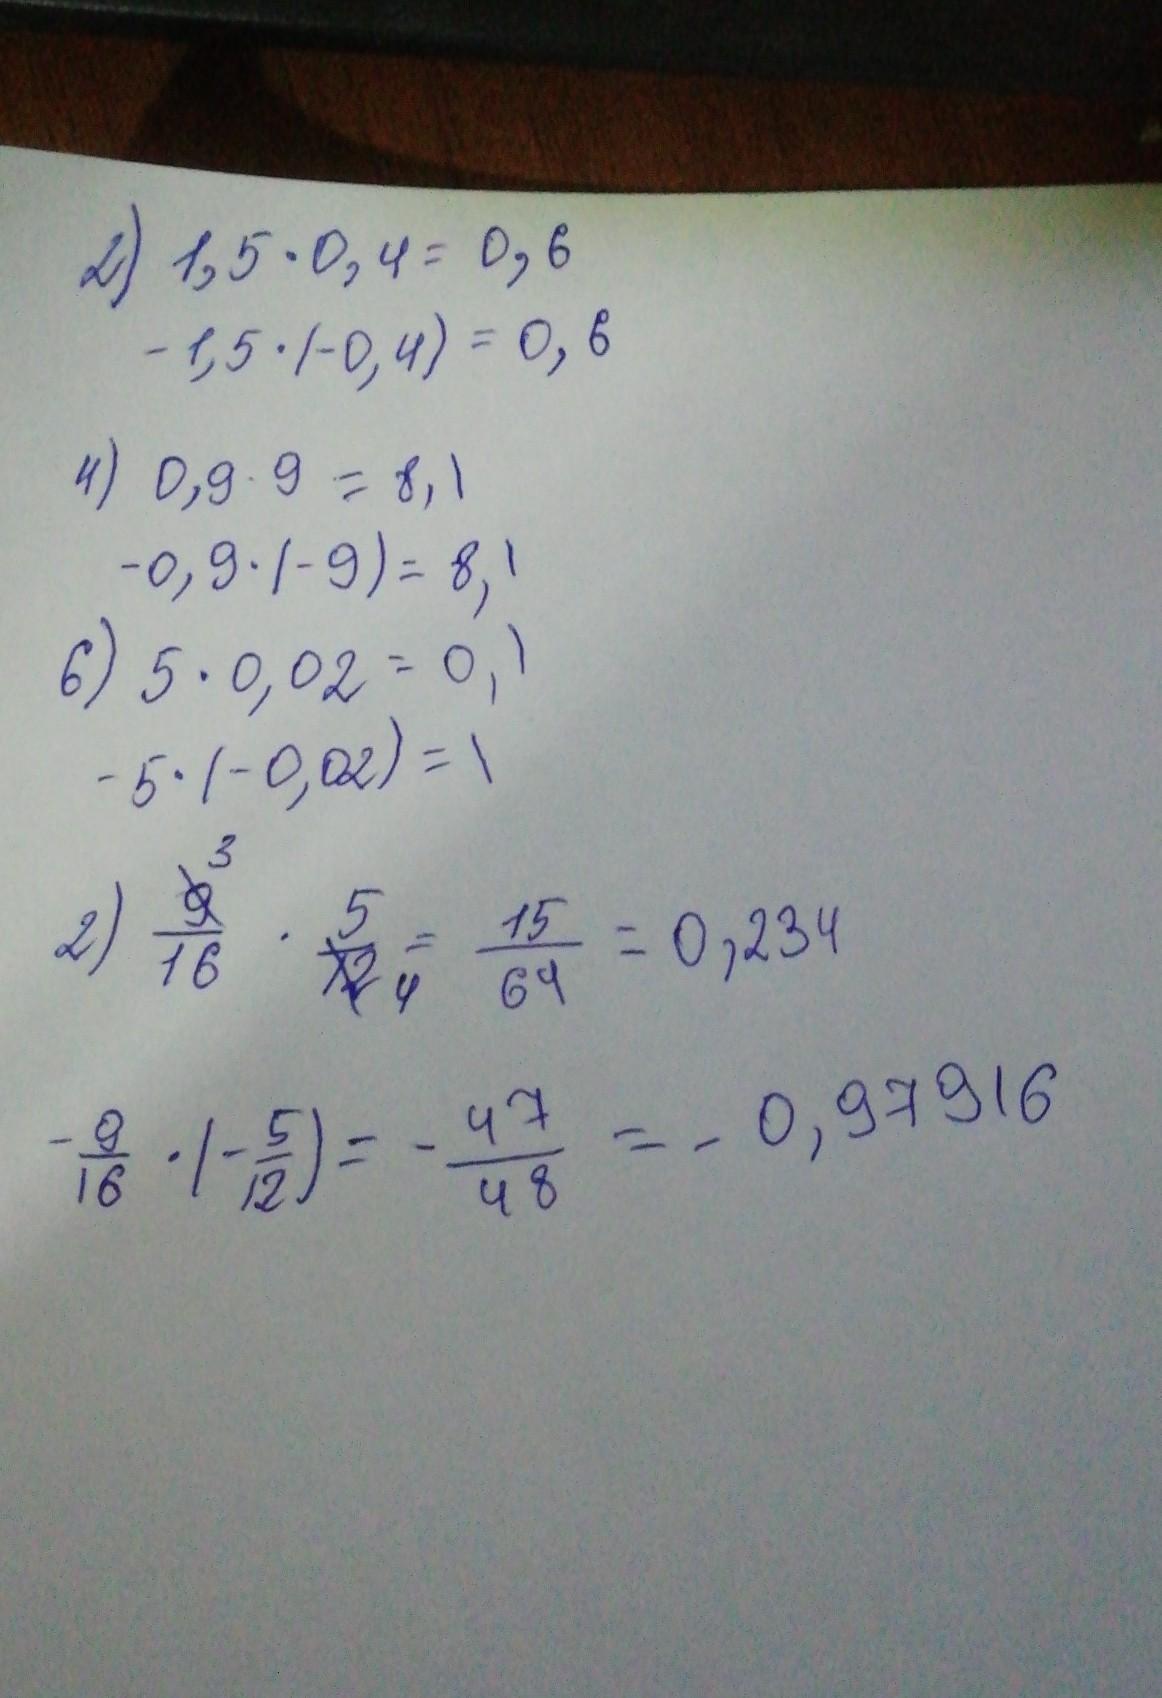 2) 1,5 · 0,4 = 0,6
-1,5 · (-0,4) = 0,6
4) 0,9 · 9 = 8,1
-0,9 · (-9) = 8,1
6) 5 · 0,02 = 0,1
-5 · (-0,02) = 1
2) 9/16 3 · 5/12 4 = 15/64 = 0,234
-9/16 · (-5/12) = -47/48 = -0,97916